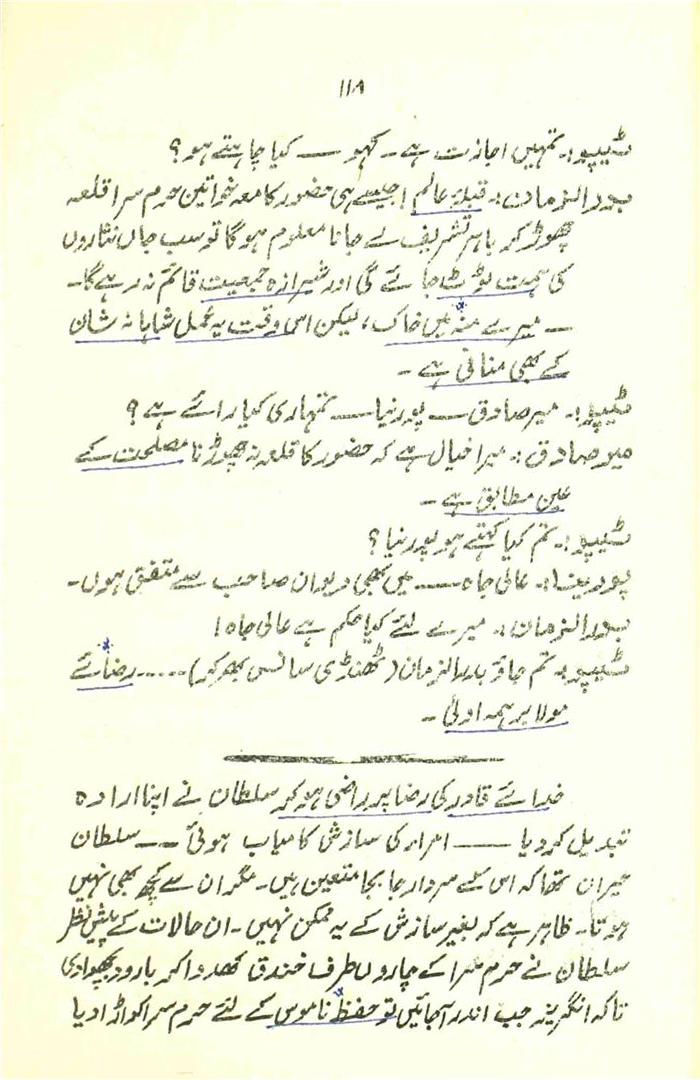 ۱۱۸
ٹیپو:۔ تمہیں اجازت ہے۔ کہو — کیا چاہتے ہو؟
بدرالزمان:۔ قبلۂ عالم! جیسے ہی حضور کا معہ خواتین حرم سرا قلعہ
چھوڑ کر باہر تشریف لے جانا معلوم ہوگا تو سب جاں نثاروں
کی ہمت ٹوٹ جائے گی اور شیرازہ جمعیت قائم نہ رہے گا۔
— میرے منہ میں خاک، لیکن اس وقت یہ عمل شاہانہ شان
کے بھی منافی ہے۔
ٹیپو:۔ میر صادق — پورنیا — تمہاری کیا رائے ہے؟
میر صادق:۔ میرا خیال ہے کہ حضور کا قلعہ نہ چھوڑنا مصلحت کے
عین مطابق ہے۔
ٹیپو:۔ تم کیا کہتے ہو پورنیا؟
پورنیا:۔ عالی جاہ — میں بھی دیوان صاحب سے متفق ہوں۔
بدرالزمان:۔ میرے لئے کیا حکم ہے عالی جاہ!
ٹیپو:۔ تم جاؤ بدرالزمان (ٹھنڈی سانس بھر کر)..... رضائے
مولا برہمہ اولیٰ۔
خدائے قادر کی رضا پر راضی ہو کر سلطان نے اپنا ارادہ
تبدیل کر دیا — امراء کی سازش کامیاب ہوئی — سلطان
حیران تھا کہ اس کے سردار جابجا متعین ہیں۔ مگر ان سے کچھ بھی نہیں
ہوتا۔ ظاہر ہے کہ بغیر سازش کے یہ ممکن نہیں۔ ان حالات کے پیش نظر
سلطان نے حرم سرا کے چاروں طرف خندق کھدوا کر بارود بچھوا دی
تاکہ انگریز جب اندر آجائیں تو حفظ ناموس کے لئے حرم سرا کو اڑا دیا